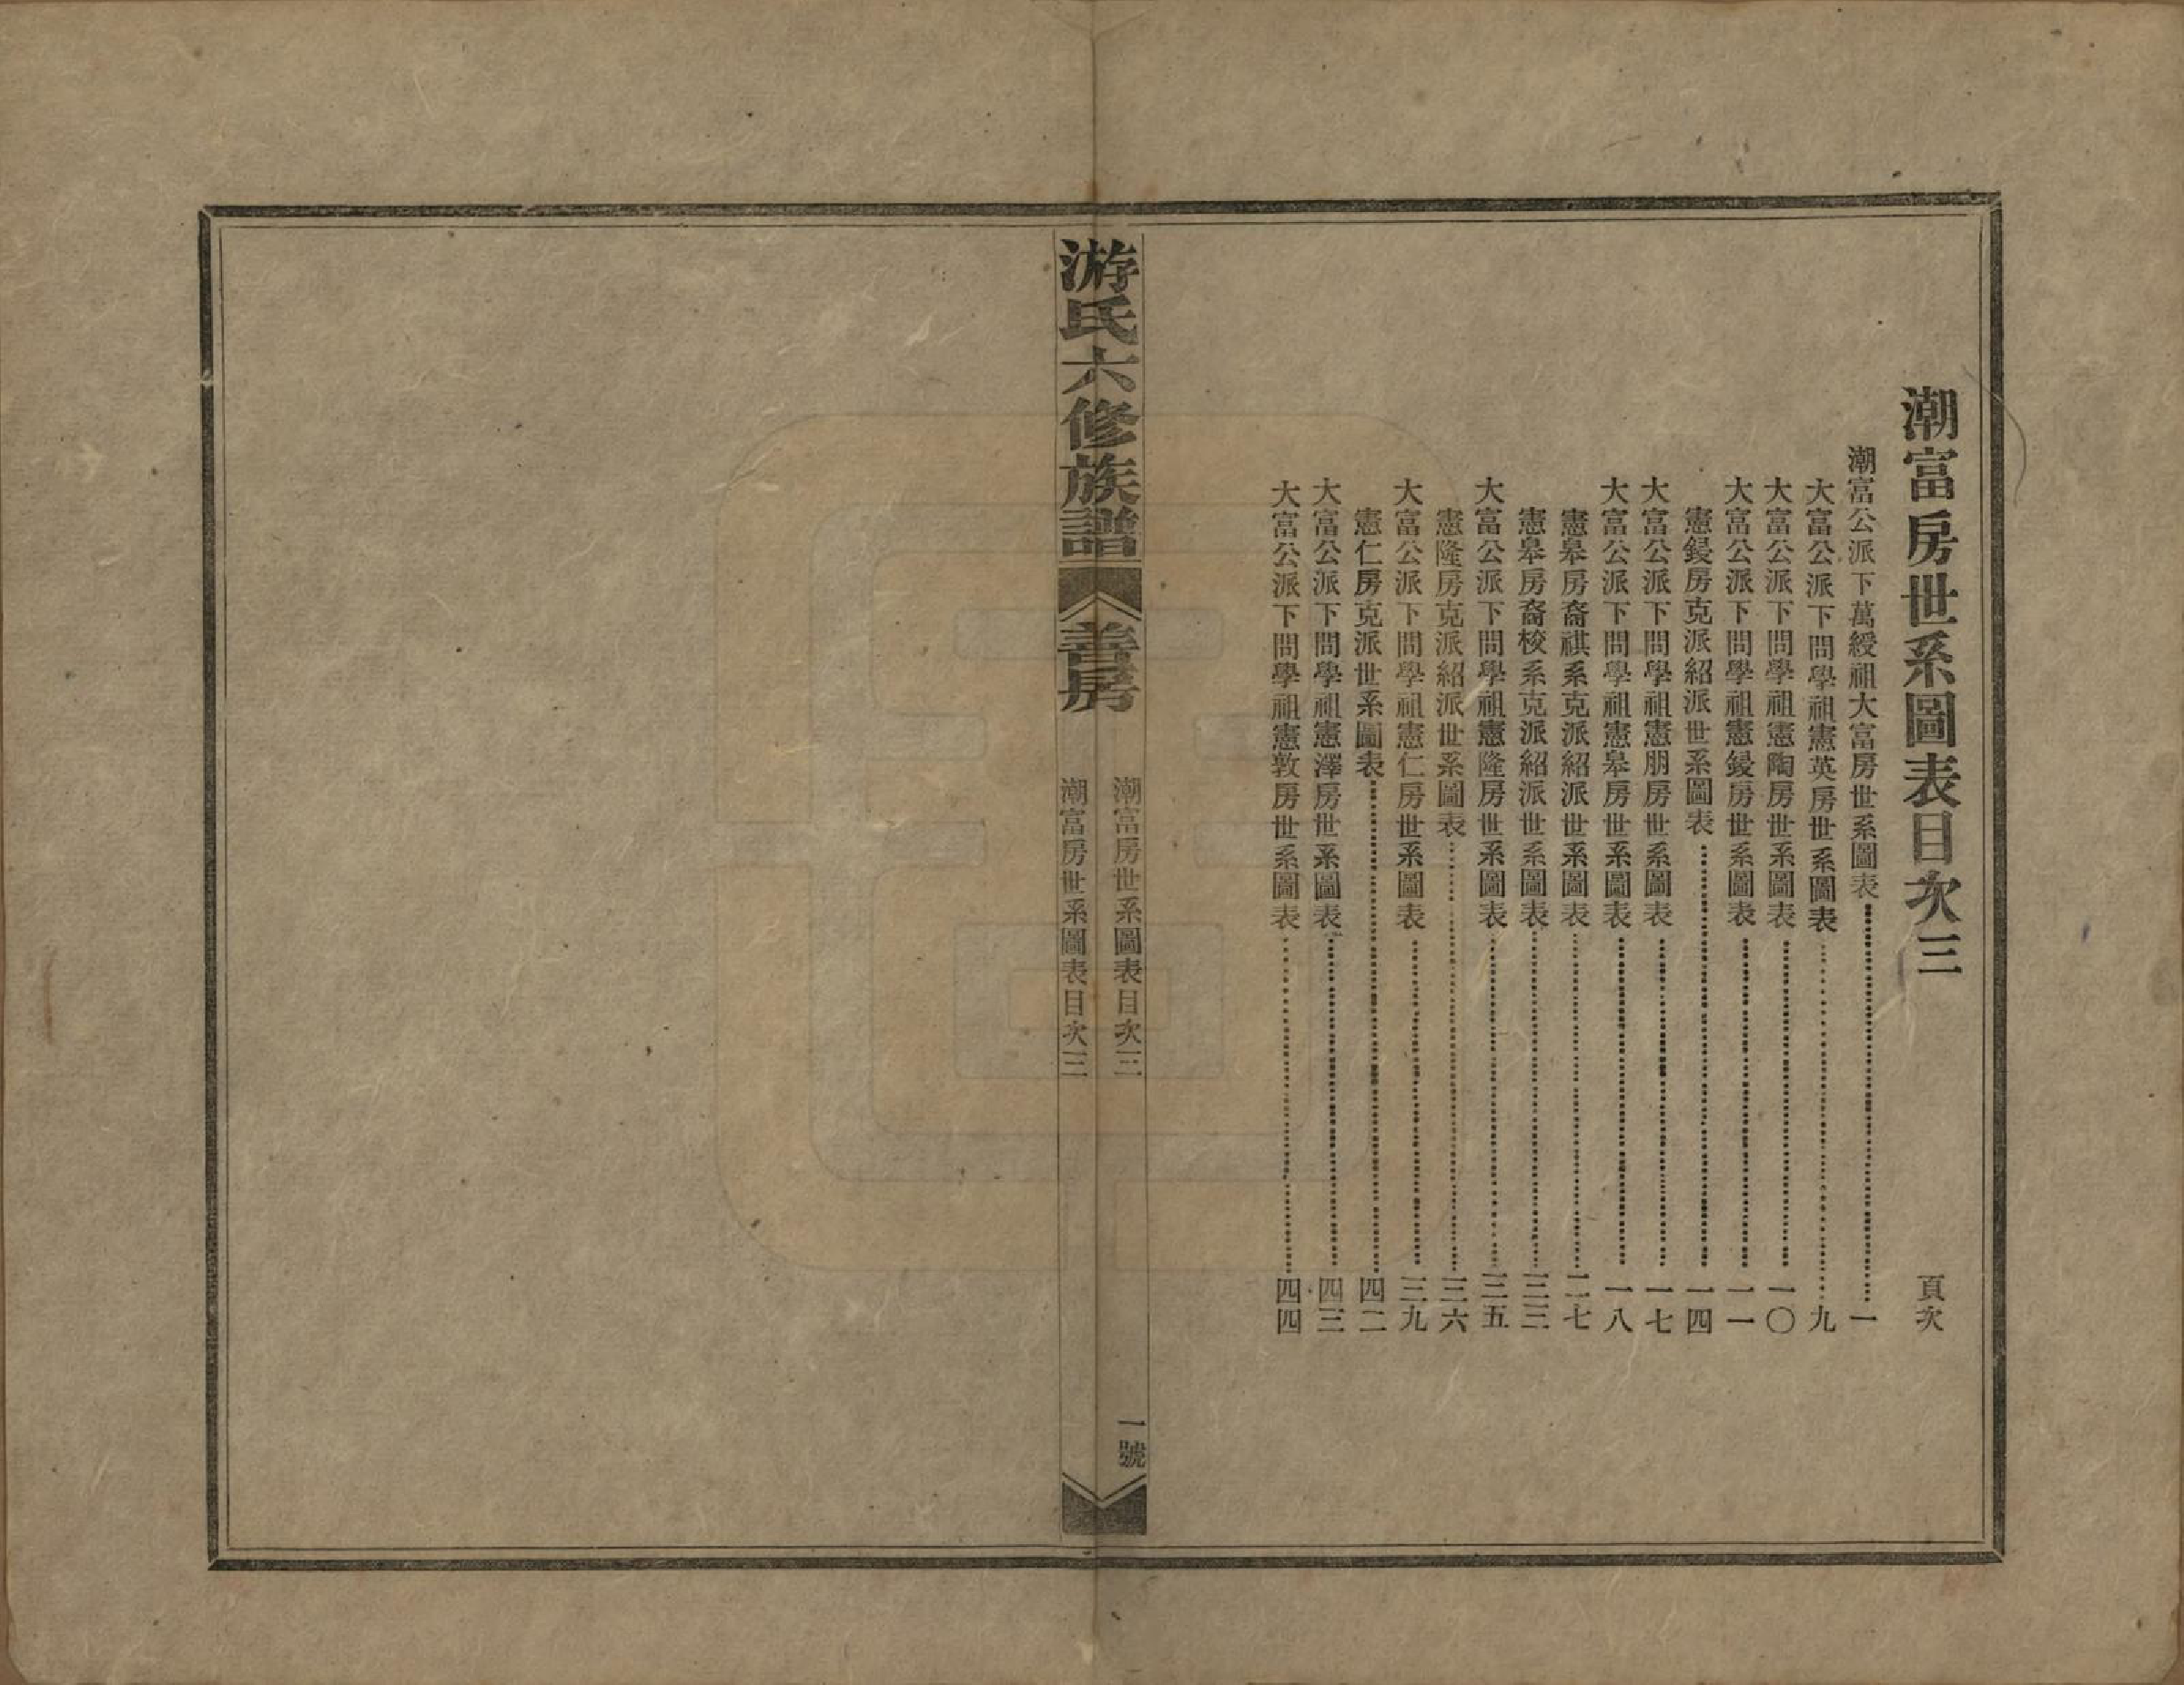 潮富房世系圖表目次三　頁次
潮富公派下萬綬祖大富房世系圖表…………一
大富公派下問學祖憲英房世系圖表…………九
大富公派下問學祖憲陶房世系圖表…………一〇
大富公派下問學祖憲鍐房世系圖表…………一一
憲鍐房克派紹派世系圖表…………一四
大富公派下問學祖憲朋房世系圖表…………一七
大富公派下問學祖憲皋房世系圖表…………一八
憲皋房裔祺系克派紹派世系圖表…………二七
憲皋房裔梭系克派紹派世系圖表…………三三
大富公派下問學祖憲隆房世系圖表…………三五
憲隆房克派紹派世系圖表…………三六
大富公派下問學祖憲仁房世系圖表…………三九
憲仁房克派世系圖表…………四二
大富公派下問學祖憲澤房世系圖表…………四三
大富公派下問學祖憲敦房世系圖表…………四四
游氏六修族譜
善房
潮富房世系圖表目次三
一號
潮富房世系圖表目次三